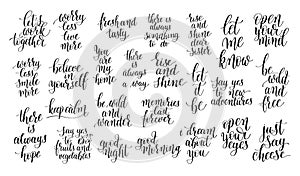 let's
work
together
worry
less
live
more
fresh and
tasty
there is
always
something
to do
rise
and
shine
dear
sister
let
me
know
open
your
mind
worry
less
smile
more
believe
in
yourself
You
are
my
home
there is
always
a way
rise
and
Shine
let
it
be
say yes
to new
adventures
be
bold and
free
there
is
always
hope
keep calm
be wild
and
wander
memories
last
forever
say yes
to
fruits and
vegetables
good
night
good
morning
dream
about
you
open
your
eyes
just
say
cheese